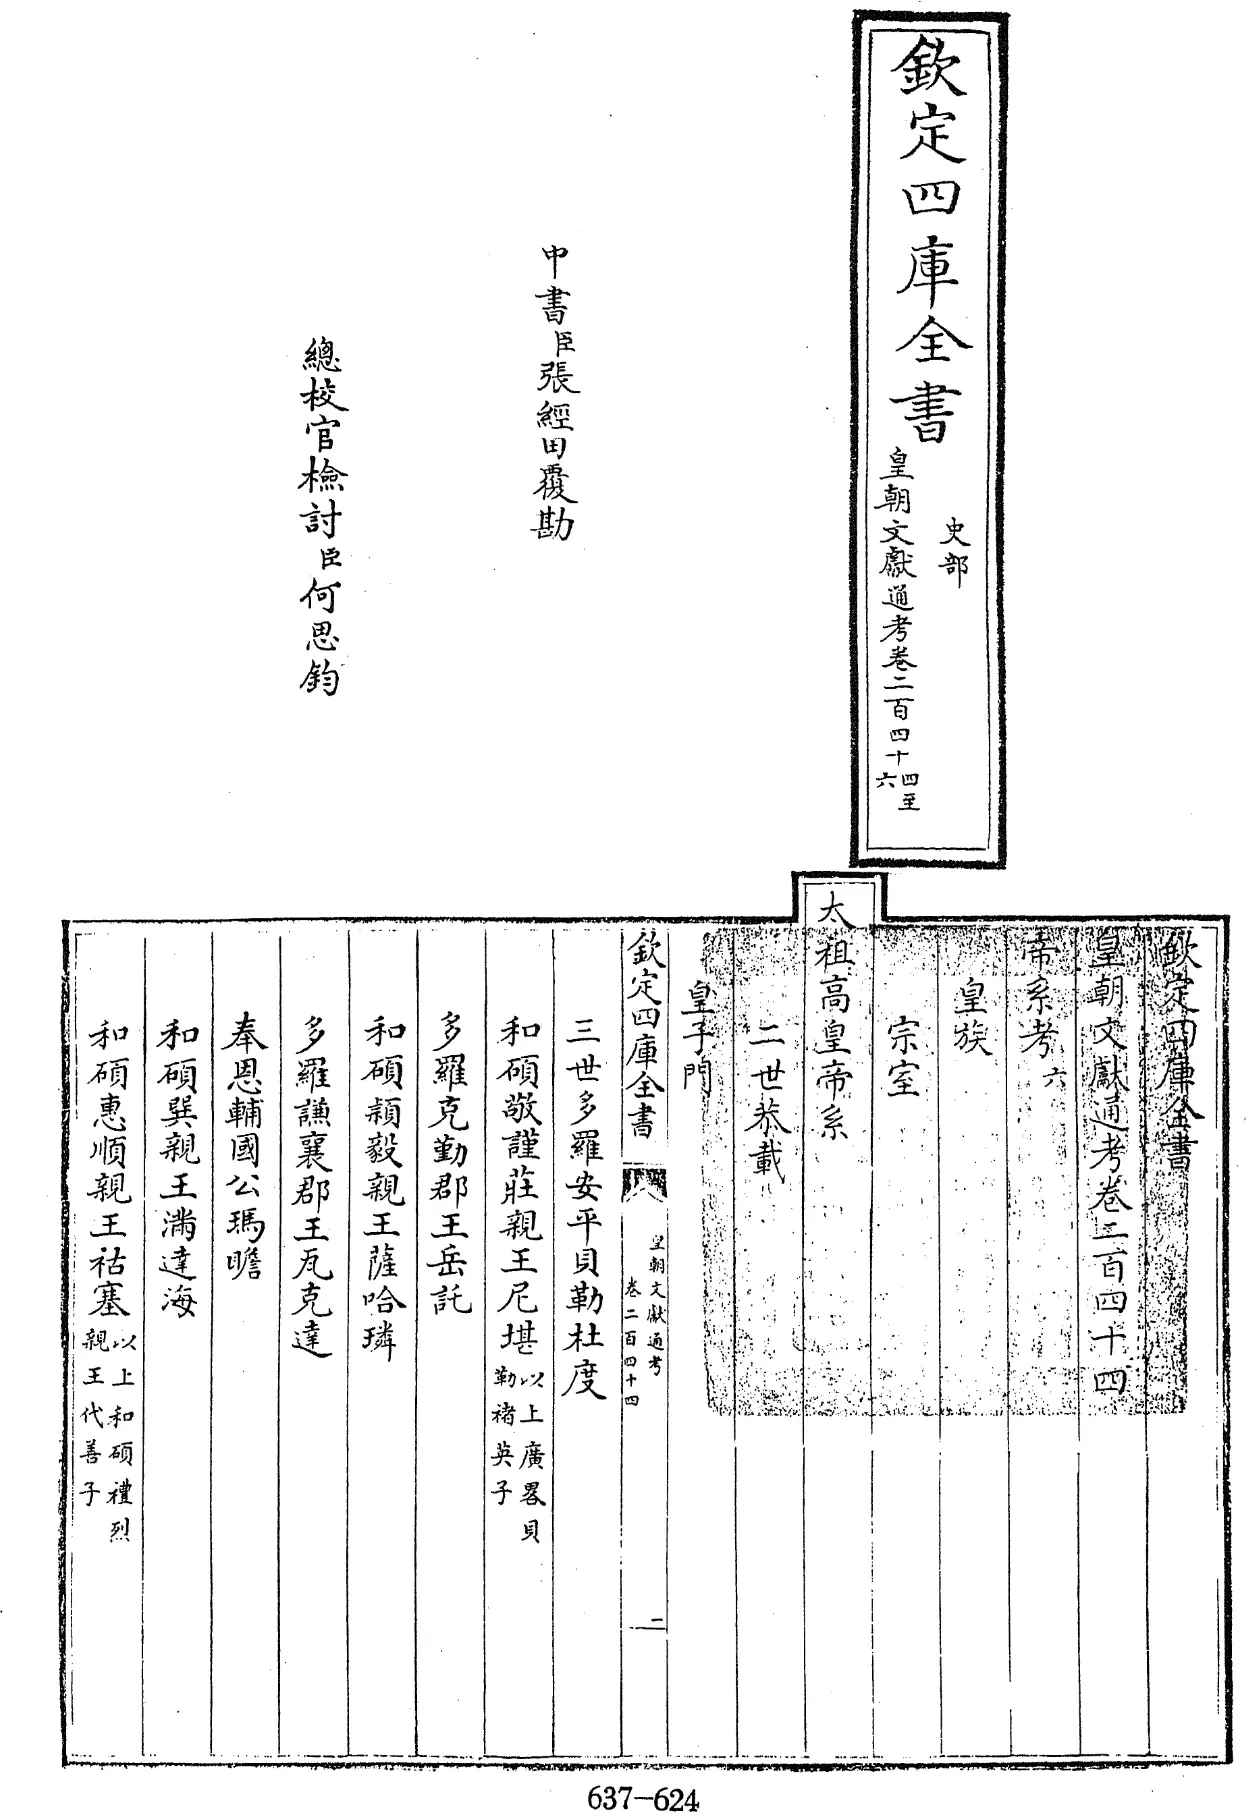 欽定四庫全書
史部
皇朝文獻通考卷二百四十四至
六
中書臣張經田覆勘
總校官檢討臣何思鈞
欽定四庫全書
皇朝文獻通考卷二百四十四
帝系考六
皇族
宗室
太祖高皇帝系
二世恭載
皇子門
欽定四庫全書
皇朝文獻通考
卷二百四十四
二
三世多羅安平貝勒杜度
和碩敬謹莊親王尼堪以上廣畧貝
勒褚英子
多羅克勤郡王岳託
和碩穎毅親王薩哈璘
多羅謙襄郡王瓦克達
奉恩輔國公瑪瞻
和碩巽親王滿達海
和碩惠順親王祜塞以上和碩禮烈
親王代善子
637-624